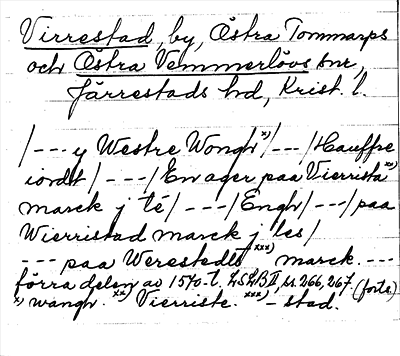 Virrestad, by, Östra Tommarps
och Östra Vemmerlövs snr,
Järrestads hd, Krist. l.
/--- y Westre Wongh x)/---/Hauffre
iordt/---/En ager paa Vierrista xx)
marck j té/---/Engh/---/paa
Wierristad marck j les/
--- paa Werestedtt xxx) marck. ---
förra delen av 1570-t. LSLB II, ss. 266, 267. (forts.)
x) wangh. xx) Vierriste. xxx) -stad.